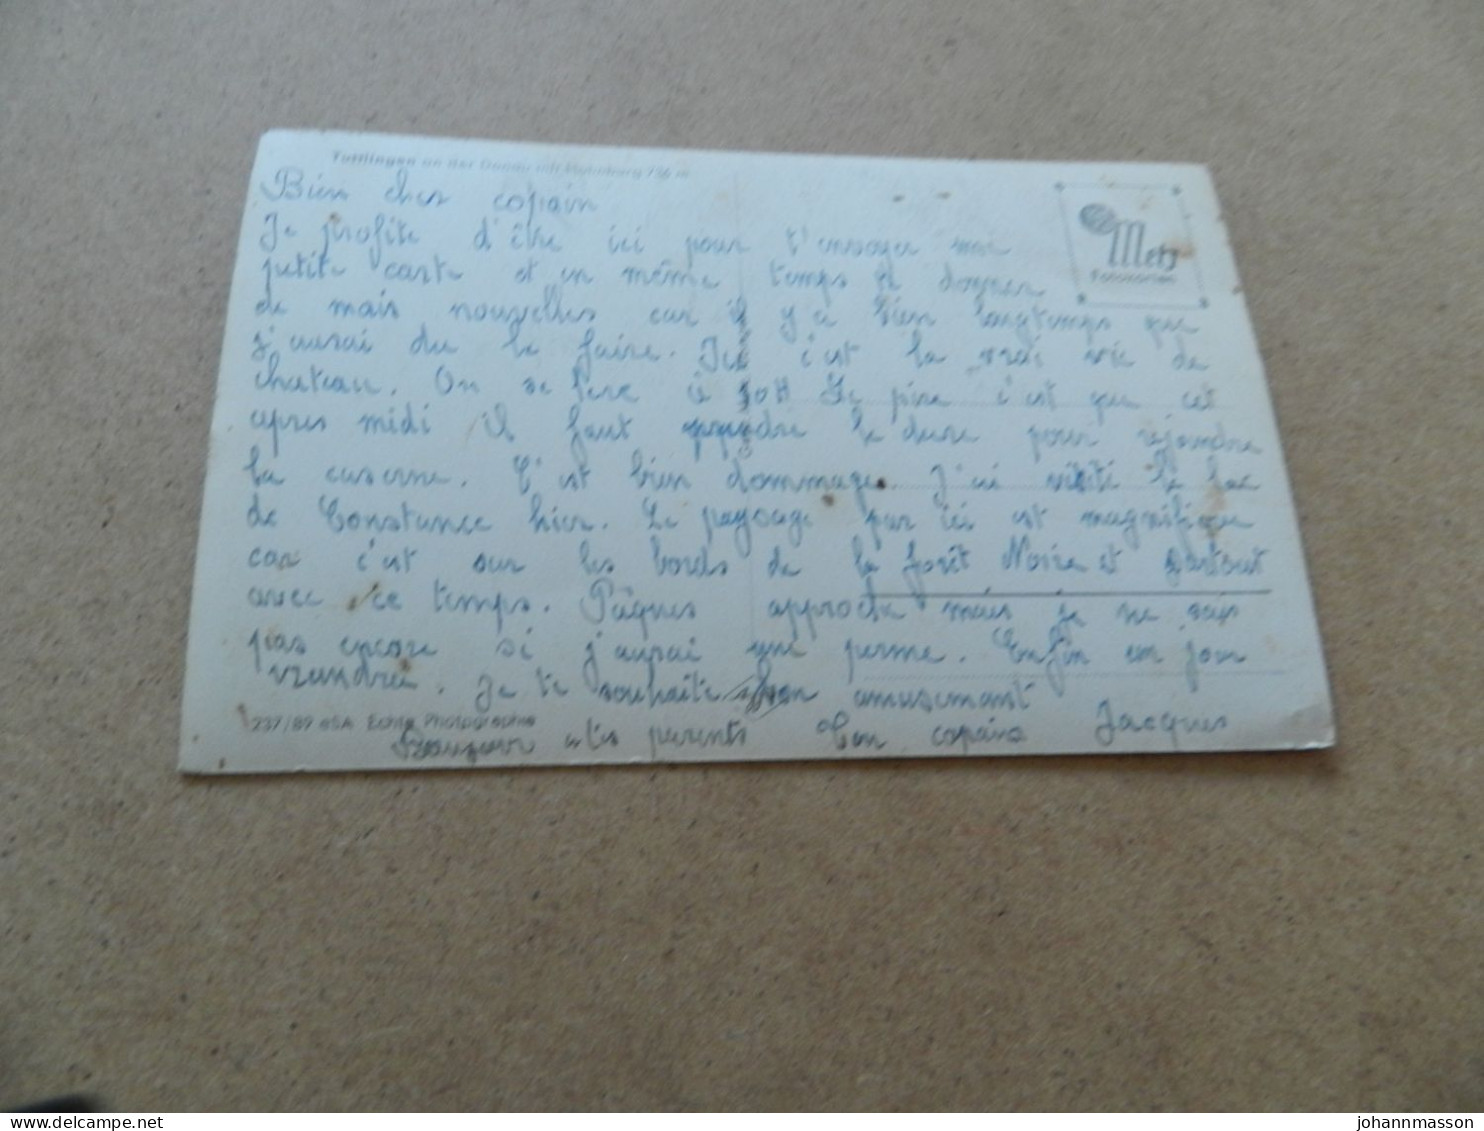 Tuttlingen an der Donau mit Honberg 736 m
Bien cher copain
Metz
Fotokarten
Je profite d'être ici pour t'envoyer une
petite carte et en même temps te donner
de mais nouvelles car il y a bien longtemps que
j'aurai du le faire. Ici c'est la vrai vie de
chateau. On se lève à 10H Le pire c'est que cet
apres midi il faut apprendre le dure pour rejoindre
la caserne. C'est bien dommage. J'ai visité le lac
de Constance hier. Le paysage par ici est magnifique
car c'est sur les bords de la forêt Noire et surtout
avec ce temps. Pâques approche mais je ne sais
pas encore si j'aurai une perme. Enfin un jour
viendra. Je te souhaite bon amusement
237/89 eSA Echte Photographie
Bonjour a tes parents Ton copain Jacques
johannmasson
delcampe.net